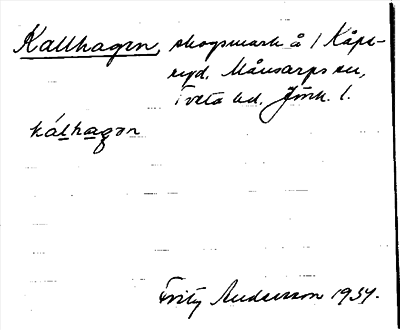 Kallhagen, skogsmark å 1 Kåpe-
ryd, Månsarps sn,
Tveta hd. Jönk. l.
kálhagən
Fritz Andersson 1934.